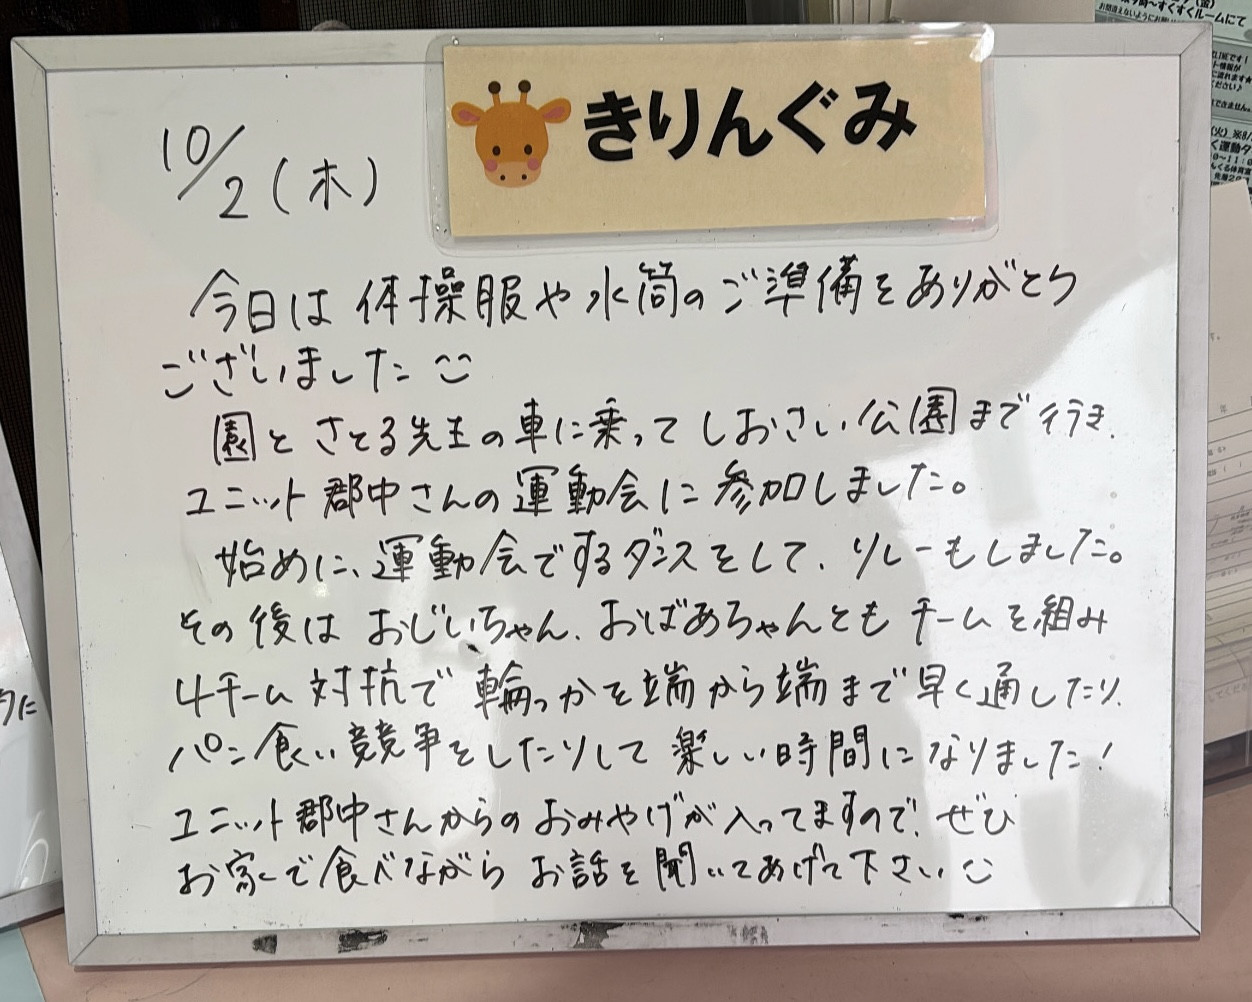 きりんぐみ
10/2(木)
今日は体操服や水筒のご準備をありがとう
ございました
園とさとる先生の車に乗ってしおさい公園まで行き、
ユニット郡中さんの運動会に参加しました。
始めに、運動会でするダンスをして、リレーもしました。
その後はおじいちゃん、おばあちゃんともチームを組み
4チーム対抗で輪っかを端から端まで早く通したり、
パン食い競争をしたりして楽しい時間になりました!
ユニット郡中さんからのおみやげが入ってますので、ぜひ
お家で食べながらお話を聞いてあげて下さい
すくすくルームにて